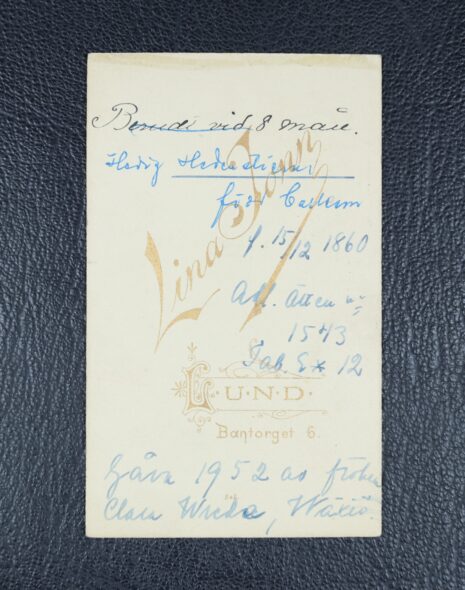 vid 8 mån.
Hedvig Hedenstierna
född
f. 15/12 1860
Adl. Ätten nr
1543
Tab. 12
Lina Jonn
LUND.
Bantorget 6.
Gåva 1952 av fröken
Clara Wreda, Wäxiö.